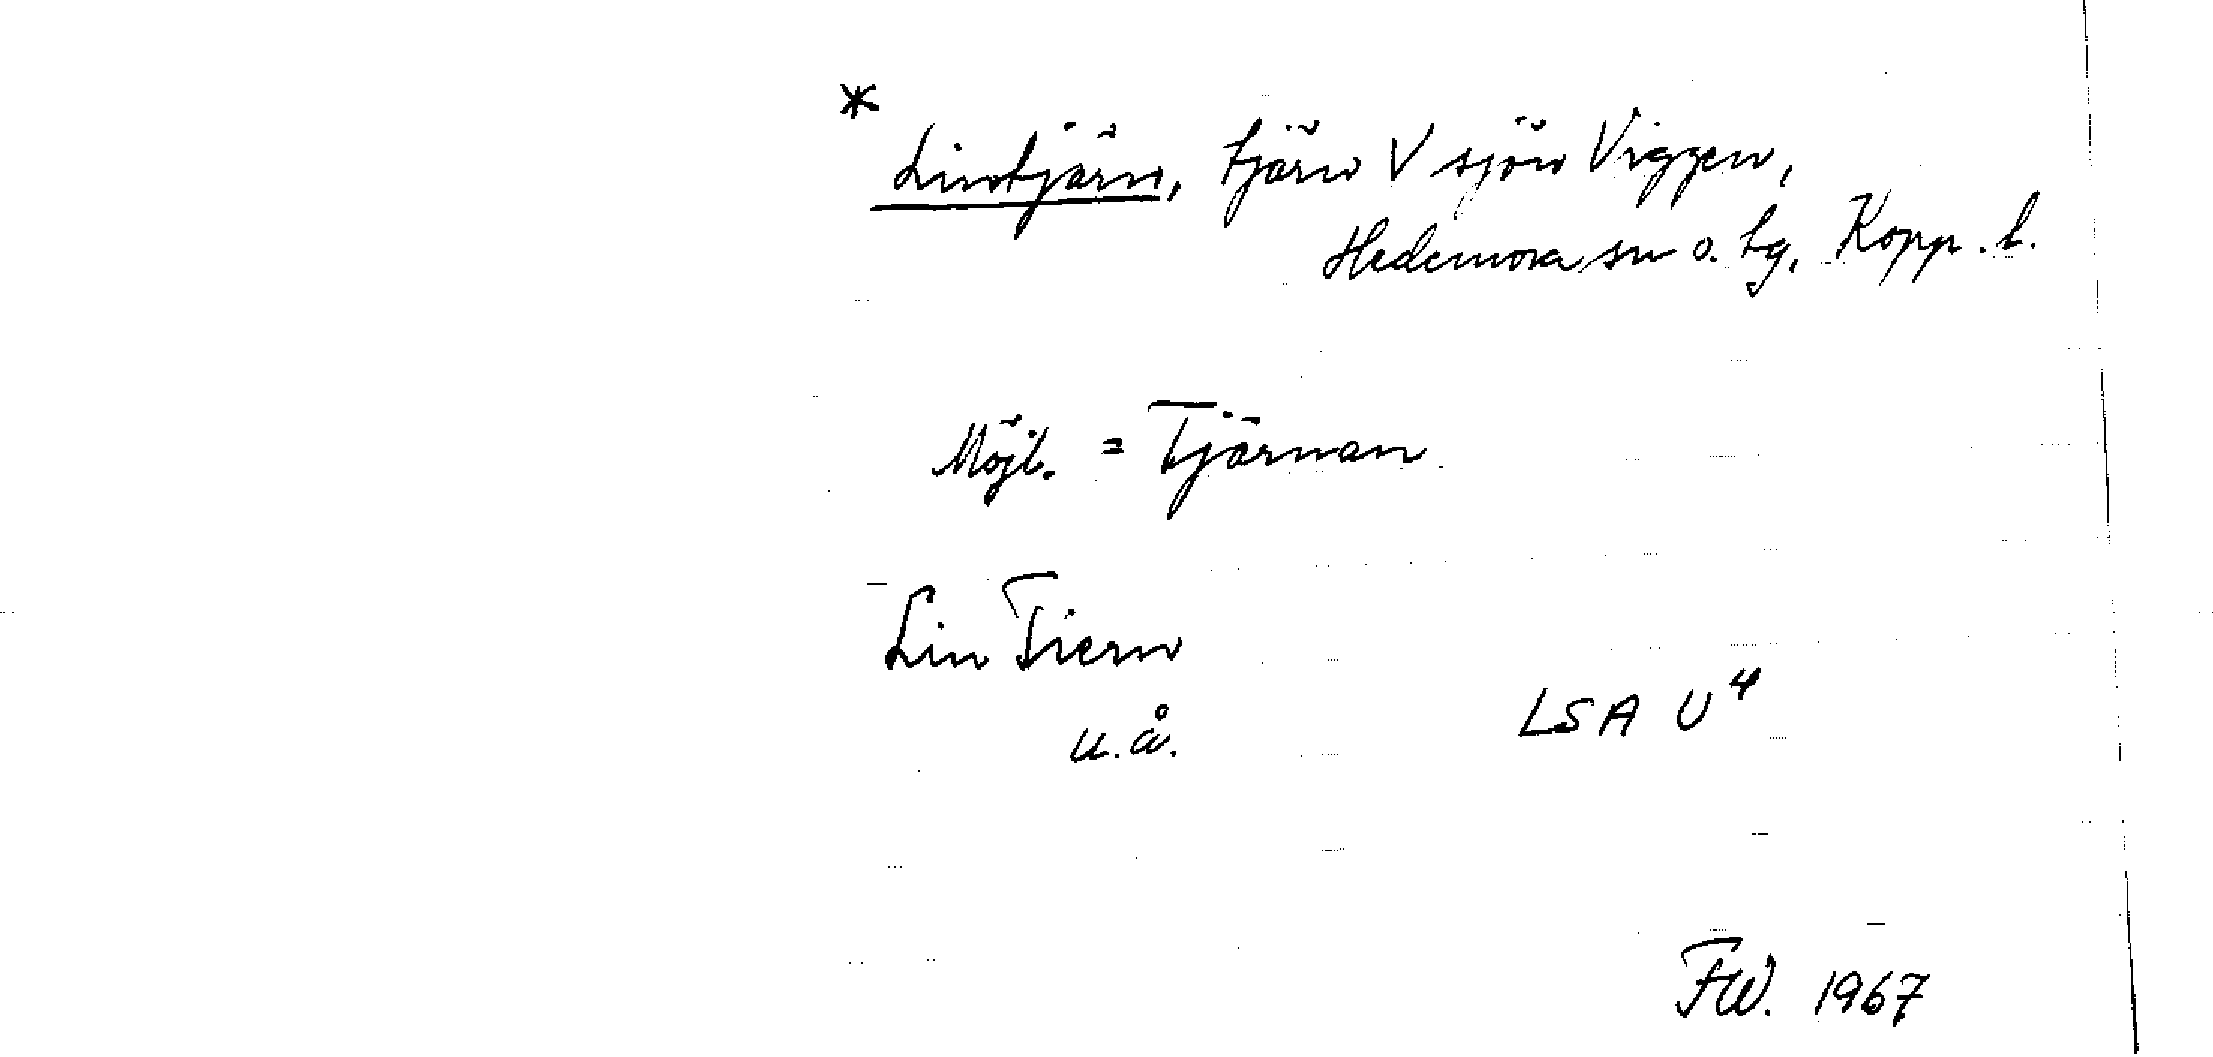 *
Lintjärn, tjärn V sjön Viggen,
Hedemora sn o. tg, Kopp. l.
Möjl. = Tjärnan
Lin Tiern
u.å. LSA U⁴
F.W. 1967